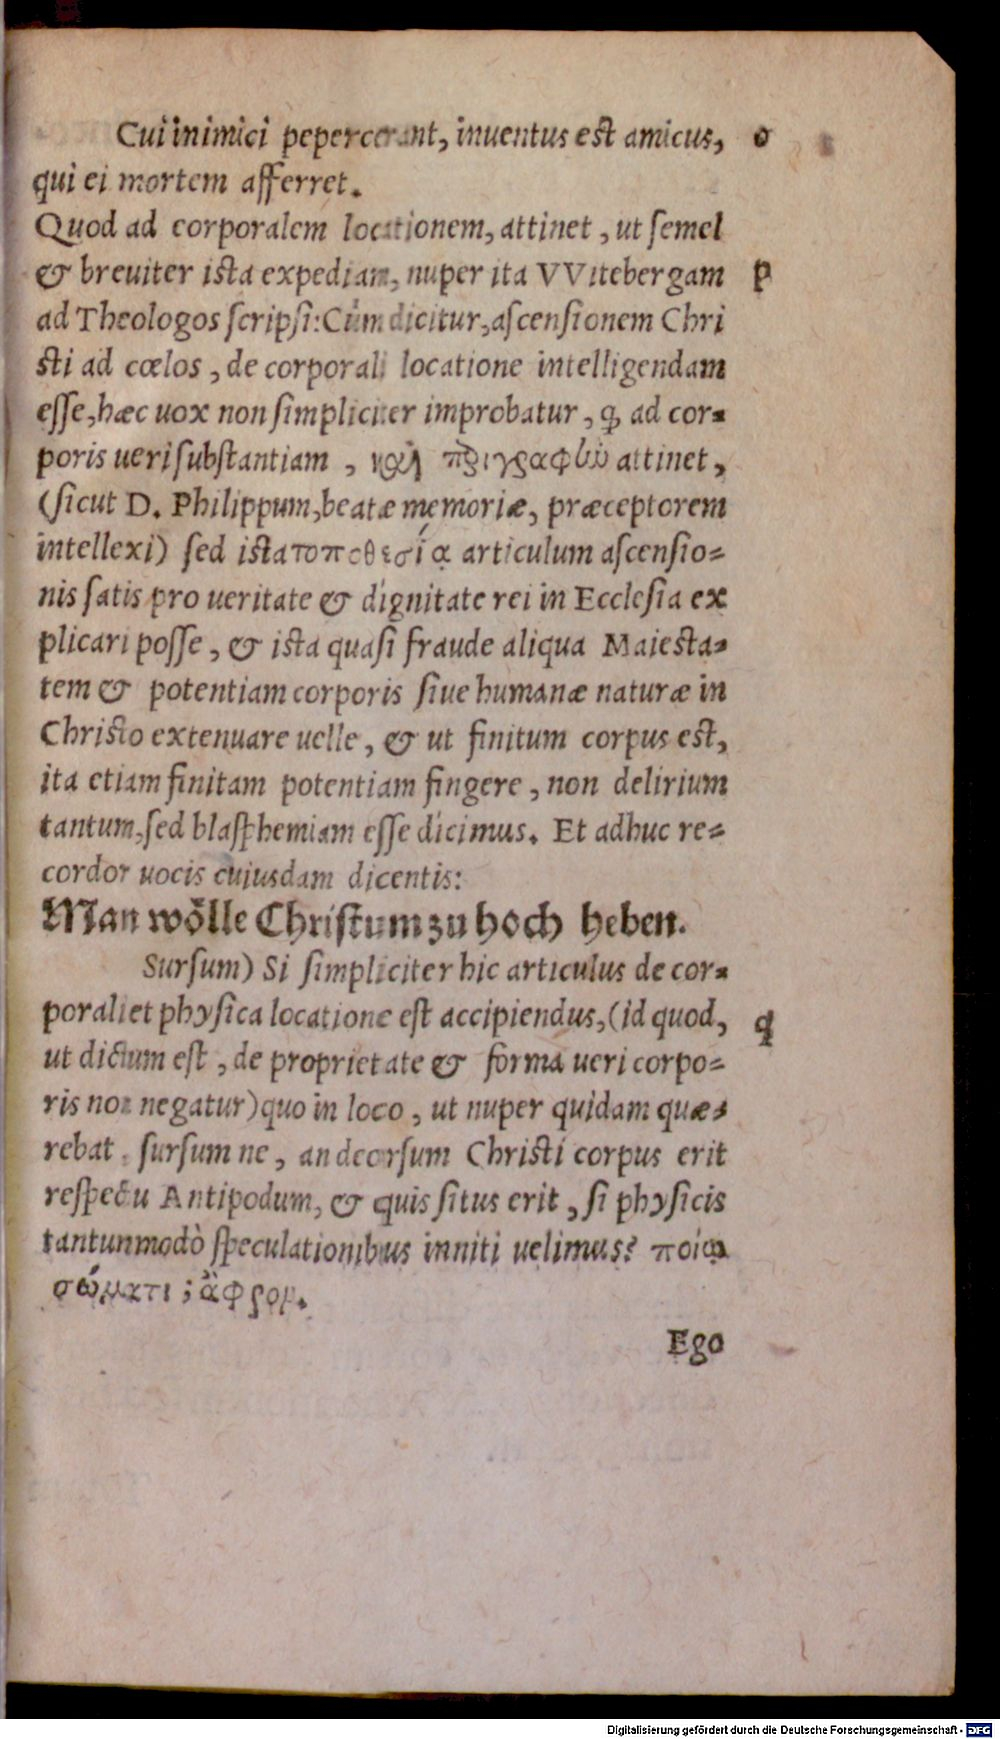 Cui inimici pepercerant, inuentus est amicus, o
qui ei mortem afferret.
Quod ad corporalem locationem, attinet, ut semel
& breuiter ista expediam, nuper ita VVitebergam p
ad Theologos scripsi: Cùm dicitur, ascensionem Chri
sti ad cœlos, de corporali locatione intelligendam
esse, hæc uox non simpliciter improbatur, ꝙ ad cor-
poris ueri substantiam, καὶ περιγραφὴν attinet,
(sicut D. Philippum, beatæ memoriæ, præceptorem
intellexi) sed ista τοποθεσίᾳ articulum ascensio-
nis satis pro ueritate & dignitate rei in Ecclesia ex
plicari posse, & ista quasi fraude aliqua Maiesta-
tem & potentiam corporis siue humanæ naturæ in
Christo extenuare uelle, & ut finitum corpus est,
ita etiam finitam potentiam fingere, non delirium
tantum, sed blasphemiam esse dicimus. Et adhuc re-
cordor uocis cuiusdam dicentis:
Man wölle Christum zu hoch heben.
Sursum) Si simpliciter hic articulus de cor-
porali et physica locatione est accipiendus, (id quod, q
ut dictum est, de proprietate & forma ueri corpo-
ris non negatur) quo in loco, ut nuper quidam quæ-
rebat, sursum ne, an deorsum Christi corpus erit
respectu Antipodum, & quis situs erit, si physicis
tantunmodò speculationibus inniti uelimus? ποίῳ
σώματι; ἄφρον.
Ego
Digitalisierung gefördert durch die Deutsche Forschungsgemeinschaft - DFG